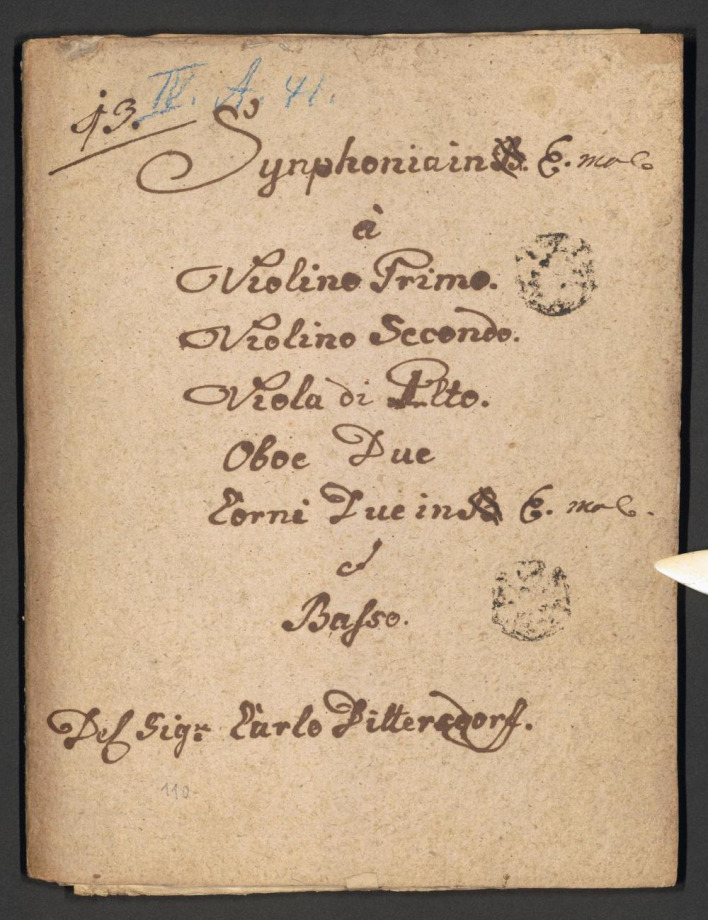 IV. A. 41.
13.
Synphonia in B. E. mol
à
Violino Primo.
Violino Secondo.
Viola di Alto.
Oboe Due
Corni Due in B E. mol.
et
Basso.
Del Sigr. Carlo Dittersdorf.
110